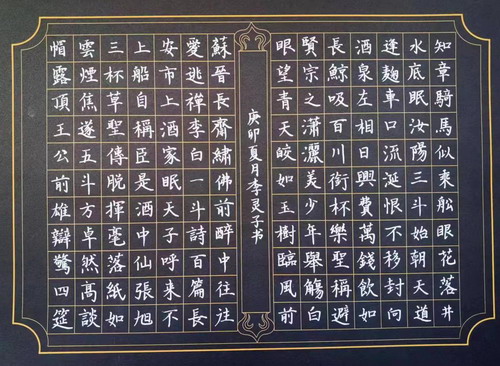 知章騎馬似乗舩眼花落井
水底眠汝陽三斗始朝天道
逢麹車口流涎恨不移封向
酒泉左相日興費萬錢飲如
長鯨吸百川銜杯樂聖稱避
賢宗之瀟灑美少年舉觴白
眼望青天皎如玉樹臨風前
庚卯夏月李灵子书
蘇晉長齋繡佛前醉中往往
愛逃禪李白一斗詩百篇長
安市上酒家眠天子呼來不
上船自稱臣是酒中仙張旭
三杯草聖傳脫揮毫落紙如
雲煙焦遂五斗方卓然高談
帽露頂王公前雄辯驚四筵